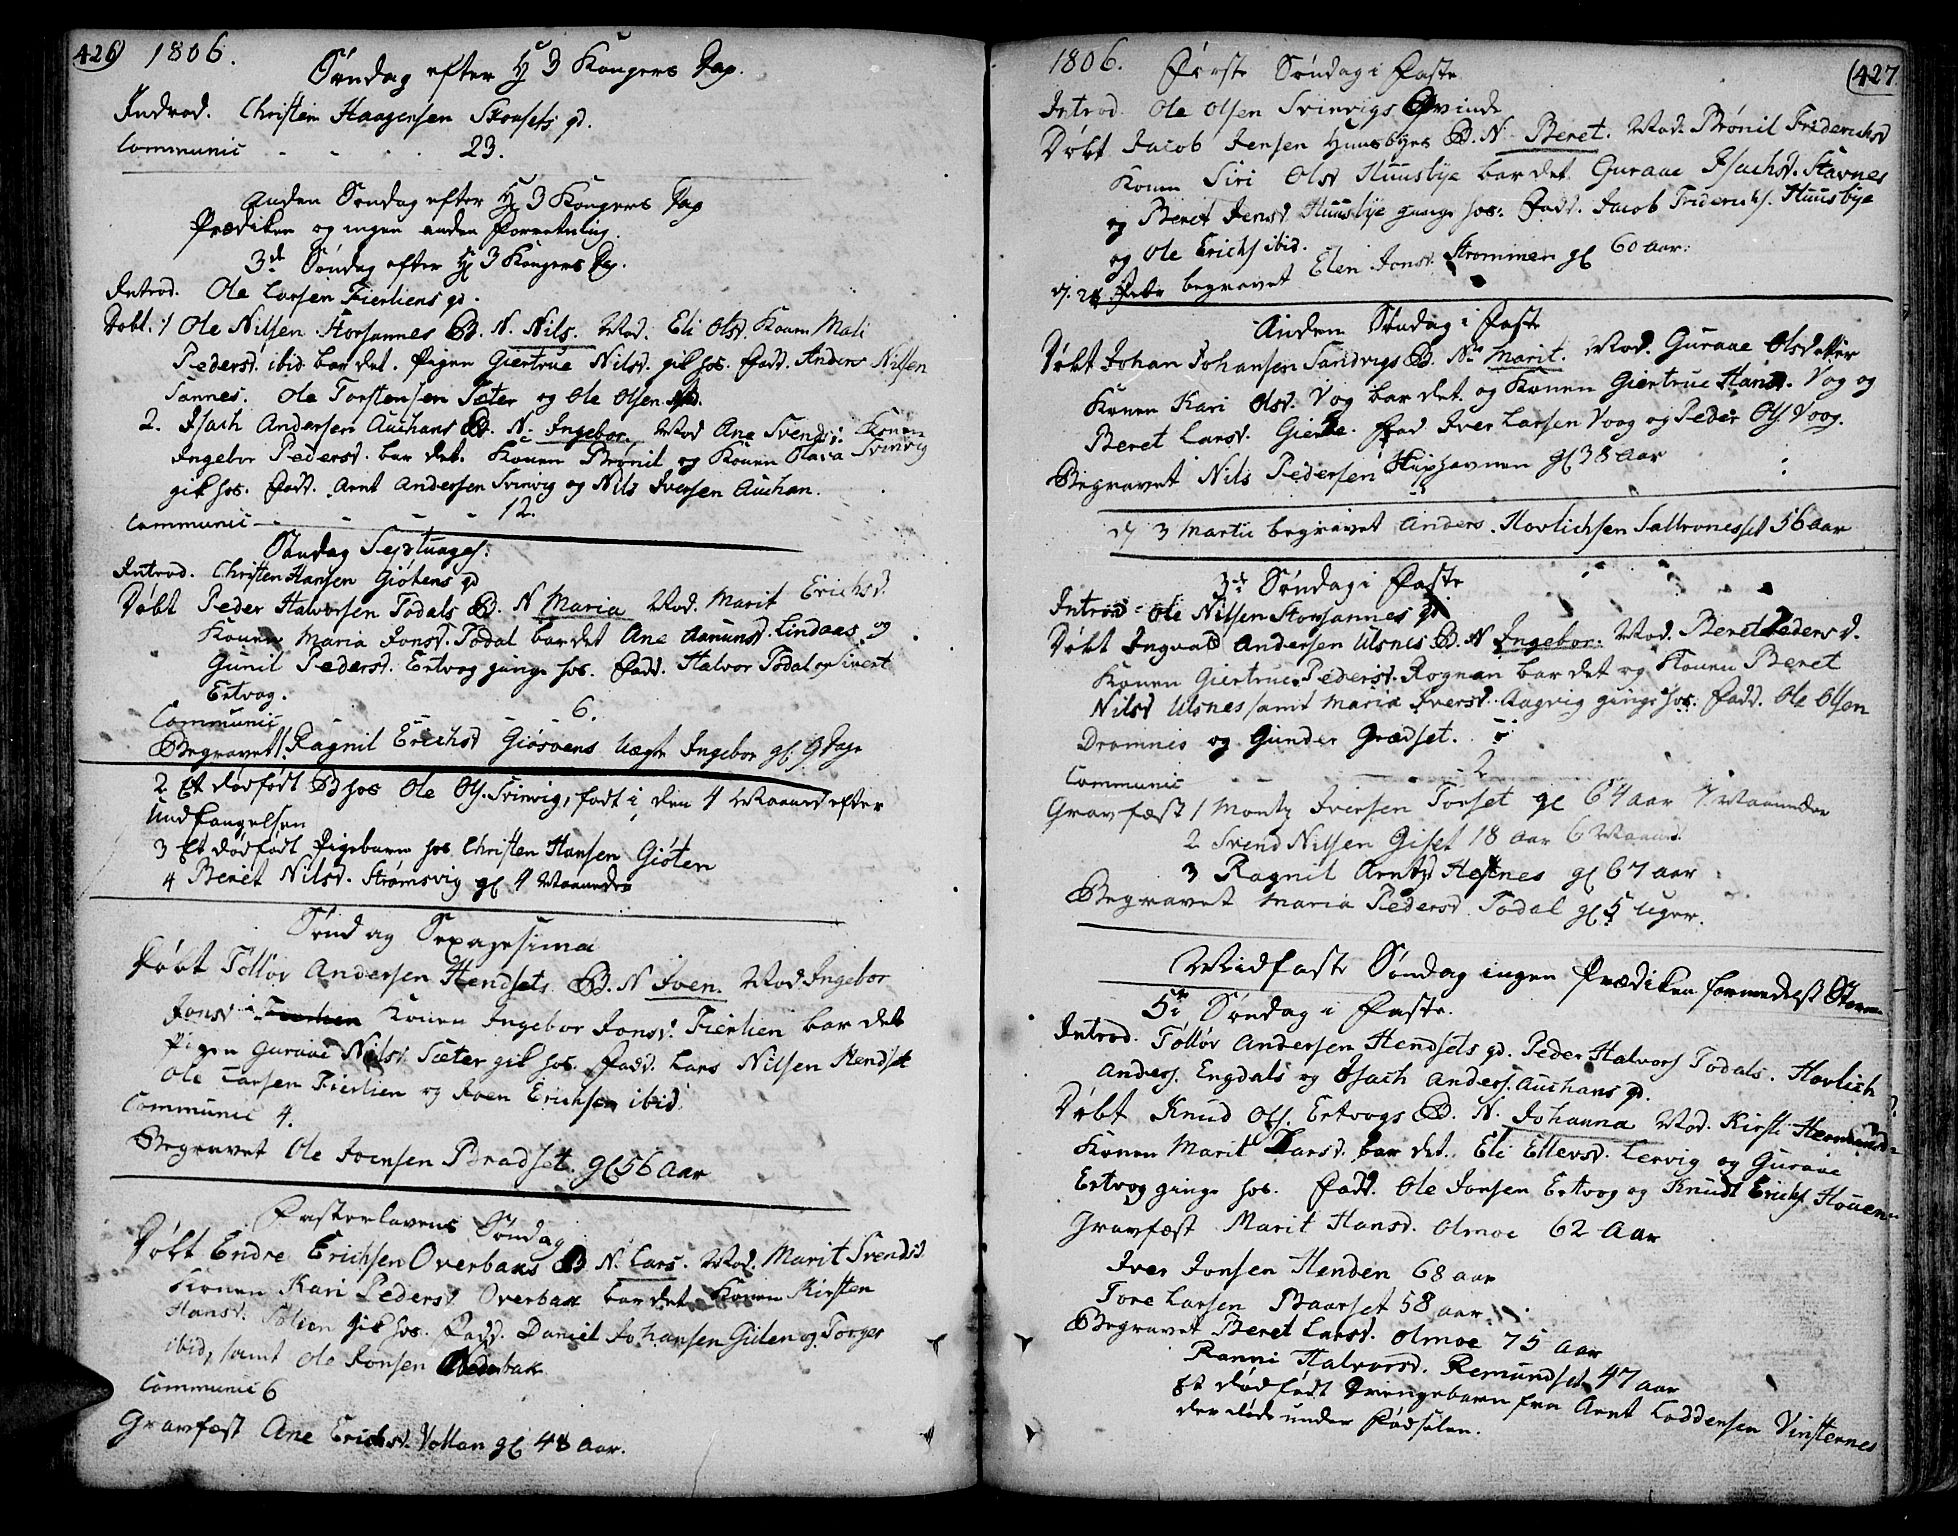 426) 1806.
Søndag efter H 3 Kongers Dag.
Indrod. Christen Haagensen Skousets qv.
Communic - - - 23.
Anden Søndag efter H 3 Kongers Dag
Prædiken og ingen anden Forretning.
3de Søndag efter H 3 Kongers Dag.
Introd. Ole Larsen Fierliens qv.
Døbt. 1 Ole Nilsen Storsannes B. N. Nils. Mod. Eli Olsd. Konen Mali
Pedersd. ibid bar det. Pigen Giertrue Nilsd. gik hos. Fadd. Anders Nilsen
Sannes. Ole Torstensen Sæter og Ole Olsen ibid.
2. Isach Andersen Auchans B. N. Ingebor. Mod Ane Svendsd. Konen
Ingebor Pedersd. bar det. Konen Brønil og Konen Olava Svinvig
gik hos. Fadd. Arnt Andersen Svinvig og Nils Iversen Auchan.
Communic - - - 12.
Søndag Septuages:
Introd. Christen Hansen Giøtens qv
Døbt Peder Halvorsen Todals B. N Maria Mod. Marit Erichsd.
Konen Maria Jonsd. Todal bar det Ane Aamunsd. Lindaas og
Gunil Pedersd. Ertvog ginge hos. Fadd. Halvor Todal og Sivert
Ertvog.
Communic 6.
Begravet 1. Ragnil Erichsd Giøsvens Uægte Ingebor gl 9 Dage
2 Et dødfødt B hos Ole Ols. Svinvig, født i den 4 Maaned efter
Undfangelsen
3 Et dødfødt Pigebarn hos Christen Hansen Giøten
4 Beret Nilsd. Strømsvig gl 4 Maaneder
Søndag Sexagesima
Døbt Tølløv Andersen Hendsets B. N Iven. Mod Ingebor
Jonsd Konen Ingebor Jonsd. Fierlien bar det
Pigen Guraae Nilsd. Sæter gik hos. Fadd. Lars Nilsen Hendset
Ole Larsen Fierlien og Iven Erichsen ibid
Communic 4.
Begravet Ole Joensen Bradset gl 56 Aar
Fastelavens Søndag
Døbt Endre Erichsen Overbaks B N. Lars. Mod. Marit Svendsd.
Konen Kari Pedersd Overbak bar det Konen Kirsten
Hansd. gik hos. Fadd. Daniel Johansen Gulen og Torger
ibid, samt Ole Jonsen Overbak
Communic 6
Gravfæst Ane Erichsd. Vollan gl 48 Aar.
1806. Første Søndag i Faste (427
Introd. Ole Olsen Svinvigs Qvinde
Døbt Jacob Jensen Huusbyes B. N. Beret. Mod. Brønil Friderichsd
Konen Siri Olsd Huusbye bar det Guraae Isachsd. Stavnes
og Beret Jensd. Huusbye ginge hos. Fadd. Jacob Friderichs. Huusbye
og Ole Erichs ibid.
d. 24 Febr begravet Elen Jonsd. Strømmen gl 60 Aar.
Anden Søndag i Faste
Døbt Johan Johansen Sandvigs B. N. Marit. Mod. Guraae Olsdatter
Konen Kari Olsd. Vog bar det og Konen Giertrue Hansd. Vog og
Beret Larsd. Fad Iver Larsen Voog og Peder Ols Voog.
Begravet Nils Pedersen Huphavnen gl 38 Aar
d 3 Martii begravet Anders Hovlichsen Saltronesset 56 Aar
3de Søndag i Faste
Introd. Ole Nilsen Storsannes qv
Døbt Ingvald Andersen Ulsnes B. N Ingebor. Mod. Beret Pedersd.
Konen Giertrue Pedersd. Rognan bar det og Konen Beret
Nilsd Ulsnes samt Maria Iversd. Aagvig ginge hos. Fadd. Ole Olsen
Dromnes og Gunder Grødset.
Communic 2
Gravfæst 1 Montz Iversen Torset gl 64 aar 7 Maaneder
2 Svend Nilsen Giset 18 Aar 6 Maaned.
3 Ragnil Arntsd Hestnes gl 67 aar
Begravet Maria Pedersd. Todal gl 5 Uger.
Midfaste Søndag ingen Prædiken formedelst Storm
5te Søndag i Faste.
Introd. Tølløv Andersen Hendsets qv. Peder Halvors Todals. Hovlich
Anders. Engdals og Isach Anders. Auchans qv.
Døbt Knud Ols. Ertvogs B. N. Johanna Mod. Kirsti Hermunsd
Konen Marit Larsd. bar det. Eli Ellevsd. Lervig og Guraae
Ertvog ginge hos. Fadd. Ole Jonsen Ertvog og Knudt Erichs Houen
Gravfæst Marit Hansd. Olmoe 62 Aar
Iver Jonsen Henden 68 aar
Tore Larsen Baarset 58 aar
Begravet Beret Larsd. Olmoe 75 aar
Ranni Halvorsd. Remundset 47 aar
Et dødfødt Drengebarn fra Arnt Loddensen Vinsternes
der døde under Fødselen.